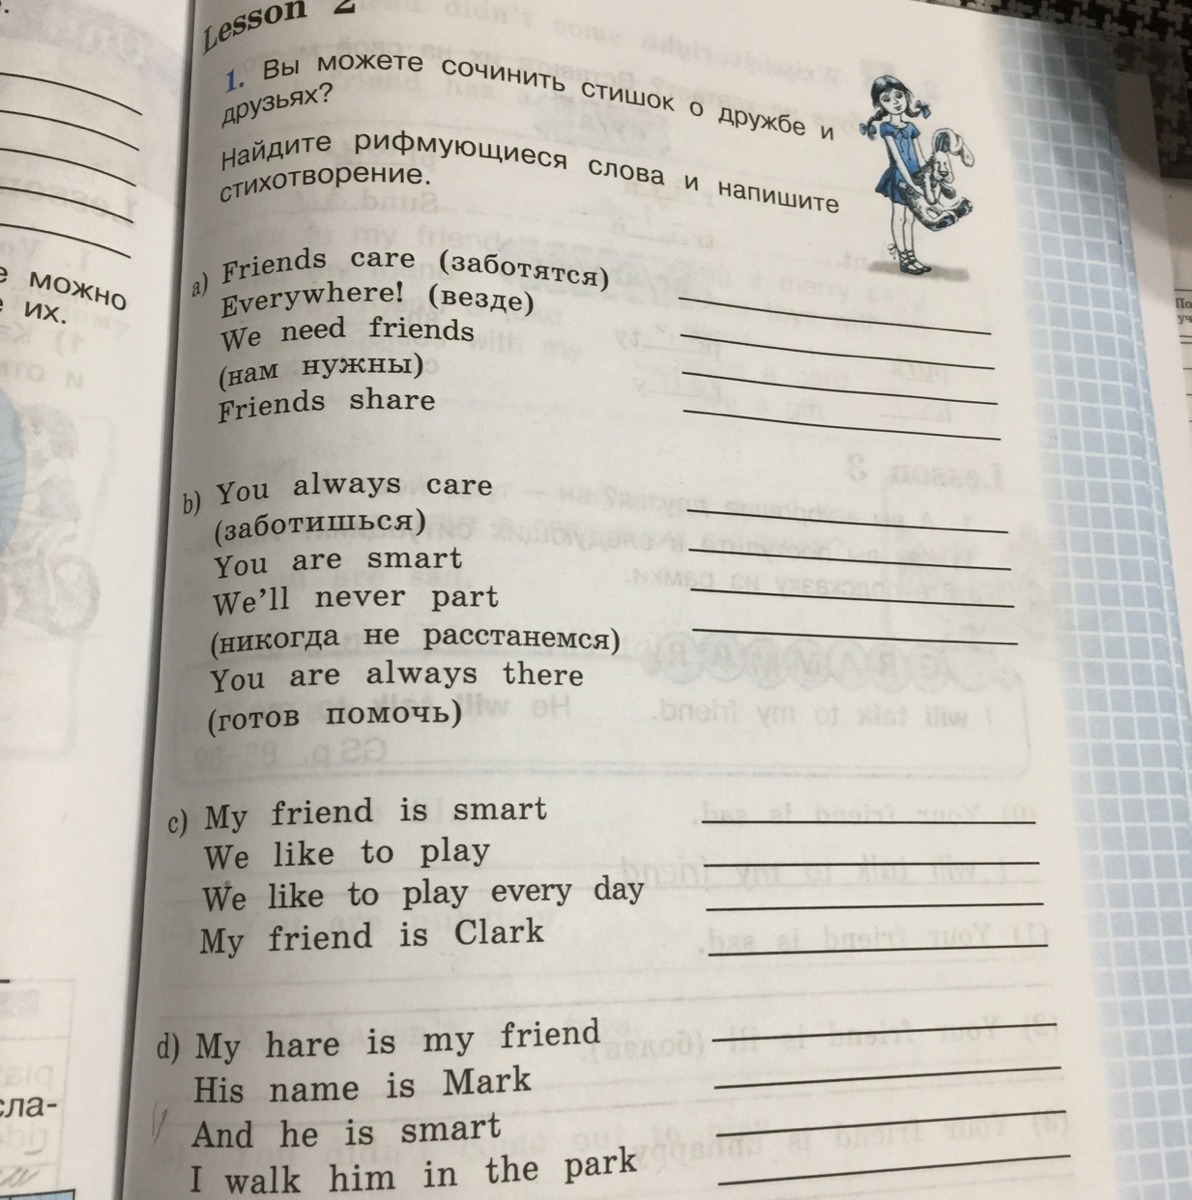 Lesson 2
1. Вы можете сочинить стишок о дружбе и
друзьях?
Найдите рифмующиеся слова и напишите
стихотворение.
a) Friends care (заботятся)
Everywhere! (везде)
We need friends
(нам нужны)
Friends share
b) You always care
(заботишься)
You are smart
We'll never part
(никогда не расстанемся)
You are always there
(готов помочь)
c) My friend is smart
We like to play
We like to play every day
My friend is Clark
d) My hare is my friend
His name is Mark
And he is smart
I walk him in the park
можно
их.
сла-